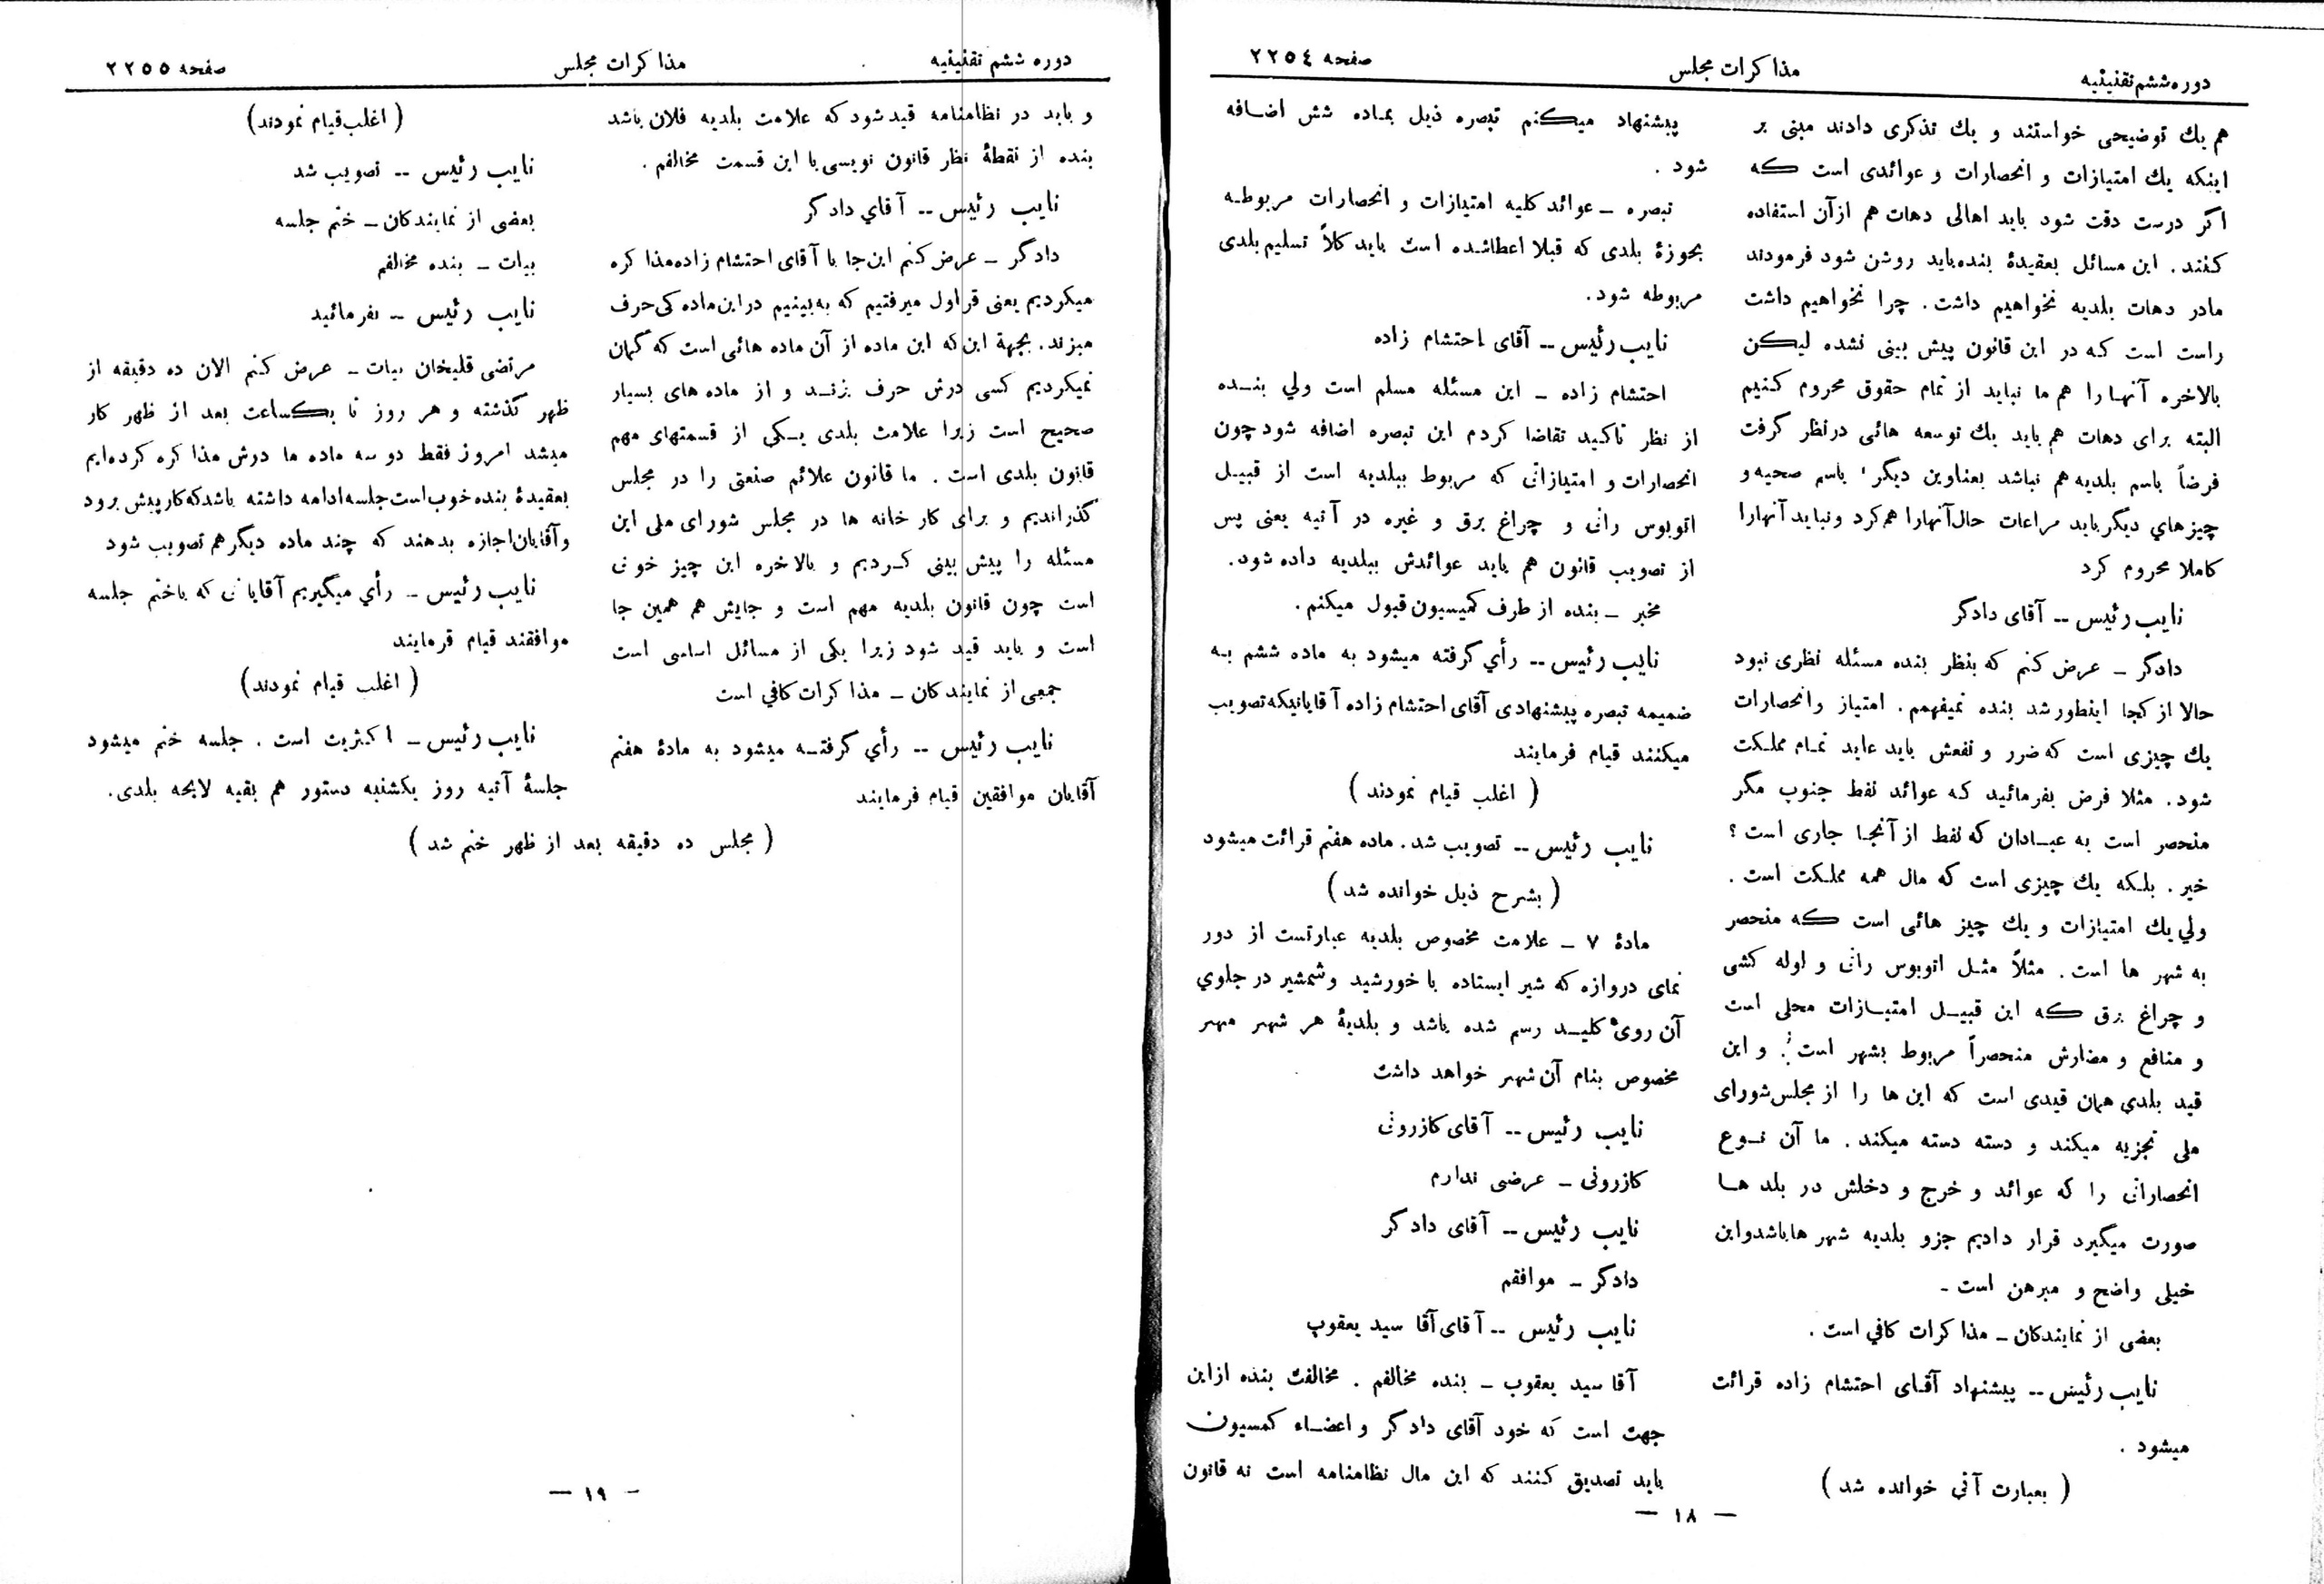 دوره ششم تقنینیه
مذاکرات مجلس
صفحه ٢٢٥٤
هم یك توضیحی خواستند و یك تذکری دادند مبنی بر
اینکه یك امتیازات و انحصارات و عوائدی است که
اگر درست دقت شود باید اهالی دهات هم ازآن استفاده
کنند . این مسائل بعقیدهٔ بنده باید روشن شود فرمودند
مادر دهات بلدیه نخواهیم داشت. چرا نخواهیم داشت
راست است که در این قانون پیش بینی نشده لیکن
بالاخره آنها را هم ما نباید از تمام حقوق محروم کنیم
البته برای دهات هم باید یك توسعه هائی درنظر گرفت
فرضاً باسم بلدیه هم نباشد بعناوین دیگر ' باسم صحیه و
چیزهاي دیگر باید مراعات حال آنهارا هم کرد و نباید آنهارا
کاملا محروم کرد
نایب رئیس -- آقای دادگر
دادگر - عرض کنم که بنظر بنده مسئله نظری نبود
حالا از کجا اینطور شد بنده نمیفهمم . امتیاز وانحصارات
یك چیزی است که ضرر و نفعش باید عاید تمام مملکت
شود . مثلا فرض بفرمائید که عوائد نفط جنوب مگر
منحصر است به عبادان که نفط از آنجا جاری است ؟
خیر . بلکه یك چیزی است که مال همه مملکت است .
ولي یك امتیازات و یك چیز هائی است که منحصر
به شهر ها است . مثلاً مثل اتوبوس رانی و لوله کشی
و چراغ برق که این قبیل امتیازات محلی است
و منافع و مضارش منحصراً مربوط بشهر است . و این
قید بلدي همان قیدی است که این ها را از مجلس شورای
ملی تجزیه میکند و دسته دسته میکند . ما آن نوع
انحصاراتی را که عوائد و خرج و دخلش در بلد ها
صورت میگیرد قرار دادیم جزو بلدیه شهر ها باشد و این
خیلی واضح و مبرهن است -
بعضی از نمایندکان - مذاکرات کافي است .
نایب رئیس -- پیشنهاد آقای احتشام زاده قرائت
میشود .
( بعبارت آتی خوانده شد )
پیشنهاد میکنم تبصره ذیل بماده شش اضافه
شود .
تبصره - عوائد کلیه امتیازات و انحصارات مربوطه
بحوزهٔ بلدی که قبلا اعطا شده است باید کلاً تسلیم بلدی
مربوطه شود.
نایب رئیس -- آقای احتشام زاده
احتشام زاده - این مسئله مسلم است ولي بنده
از نظر تاکید تقاضا کردم این تبصره اضافه شود چون
انحصارات و امتیازاتی که مربوط ببلدیه است از قبیل
اتوبوس رانی و چراغ برق و غیره در آتیه یعنی پس
از تصویب قانون هم باید عوائدش ببلدیه داده شود.
مخبر - بنده از طرف کمیسیون قبول میکنم .
نایب رئیس -- رأي گرفته میشود به ماده ششم به
ضمیمه تبصره پیشنهادی آقای احتشام زاده آقایانیکه تصویب
میکنند قیام فرمایند
( اغلب قیام نمودند )
نایب رئیس -- تصویب شد . ماده هفتم قرائت میشود
( بشرح ذیل خوانده شد )
مادهٔ ٧ - علامت مخصوص بلدیه عبارتست از دور
نمای دروازه که شیر ایستاده با خورشید و شمشیر در جلوي
آن روی کلید رسم شده باشد و بلدیهٔ هر شهر مهر
مخصوص بنام آن شهر خواهد داشت
نایب رئیس -- آقای کازرونی
کازرونی - عرضی ندارم
نایب رئیس -- آقای دادگر
دادگر - موافقم
نایب رئیس -- آقای آقا سید یعقوب
آقا سید یعقوب - بنده مخالفم . مخالفت بنده ازاین
جهت است که خود آقای دادگر و اعضاء کمسیون
باید تصدیق کنند که این مال نظامنامه است نه قانون
— ١٨ —
دوره ششم تقنینیه
مذاکرات مجلس
صفحه ٢٢٥٥
و باید در نظامنامه قید شود که علامت بلدیه فلان باشد
بنده از نقطهٔ نظر قانون نویسی با این قسمت مخالفم .
نایب رئیس -- آقاي دادگر
دادگر - عرض کنم این جا با آقای احتشام زاده مذاکره
میکردیم یعنی قراول میرفتیم که به بینیم در این ماده کی حرف
میزند . بجهة این که این ماده از آن ماده هائی است که گمان
نمیکردیم کسی درش حرف بزند و از ماده های بسیار
صحیح است زیرا علامت بلدی یکی از قسمتهای مهم
قانون بلدی است . ما قانون علائم صنعتی را در مجلس
گذراندیم و برای کار خانه ها در مجلس شورای ملی این
مسئله را پیش بینی کردیم و بالاخره این چیز خوبی
است چون قانون بلدیه مهم است و جایش هم همین جا
است و باید قید شود زیرا یکی از مسائل اساسی است
جمعی از نمایندکان - مذاکرات کافي است
نایب رئیس -- رأي گرفته میشود به مادهٔ هفتم
آقایان موافقین قیام فرمایند
(اغلب قیام نمودند)
نایب رئیس -- تصویب شد
بعضی از نمایندکان - ختم جلسه
بیات - بنده مخالفم
نایب رئیس -- بفرمائید
مرتضی قلیخان بیات - عرض کنم الان ده دقیقه از
ظهر گذشته و هر روز تا یکساعت بعد از ظهر کار
میشد امروز فقط دو سه ماده ما درش مذاکره کرده‌ایم
بعقیدهٔ بنده خوب است جلسه ادامه داشته باشد که کار پیش برود
و آقایان اجازه بدهند که چند ماده دیگر هم تصویب شود
نایب رئیس - رأي میگیریم آقایانی که با ختم جلسه
موافقند قیام فرمایند
( اغلب قیام نمودند)
نایب رئیس - اکثریت است . جلسه ختم میشود
جلسهٔ آتیه روز یکشنبه دستور هم بقیه لایحه بلدی.
( مجلس ده دقیقه بعد از ظهر ختم شد )
— ١٩ —